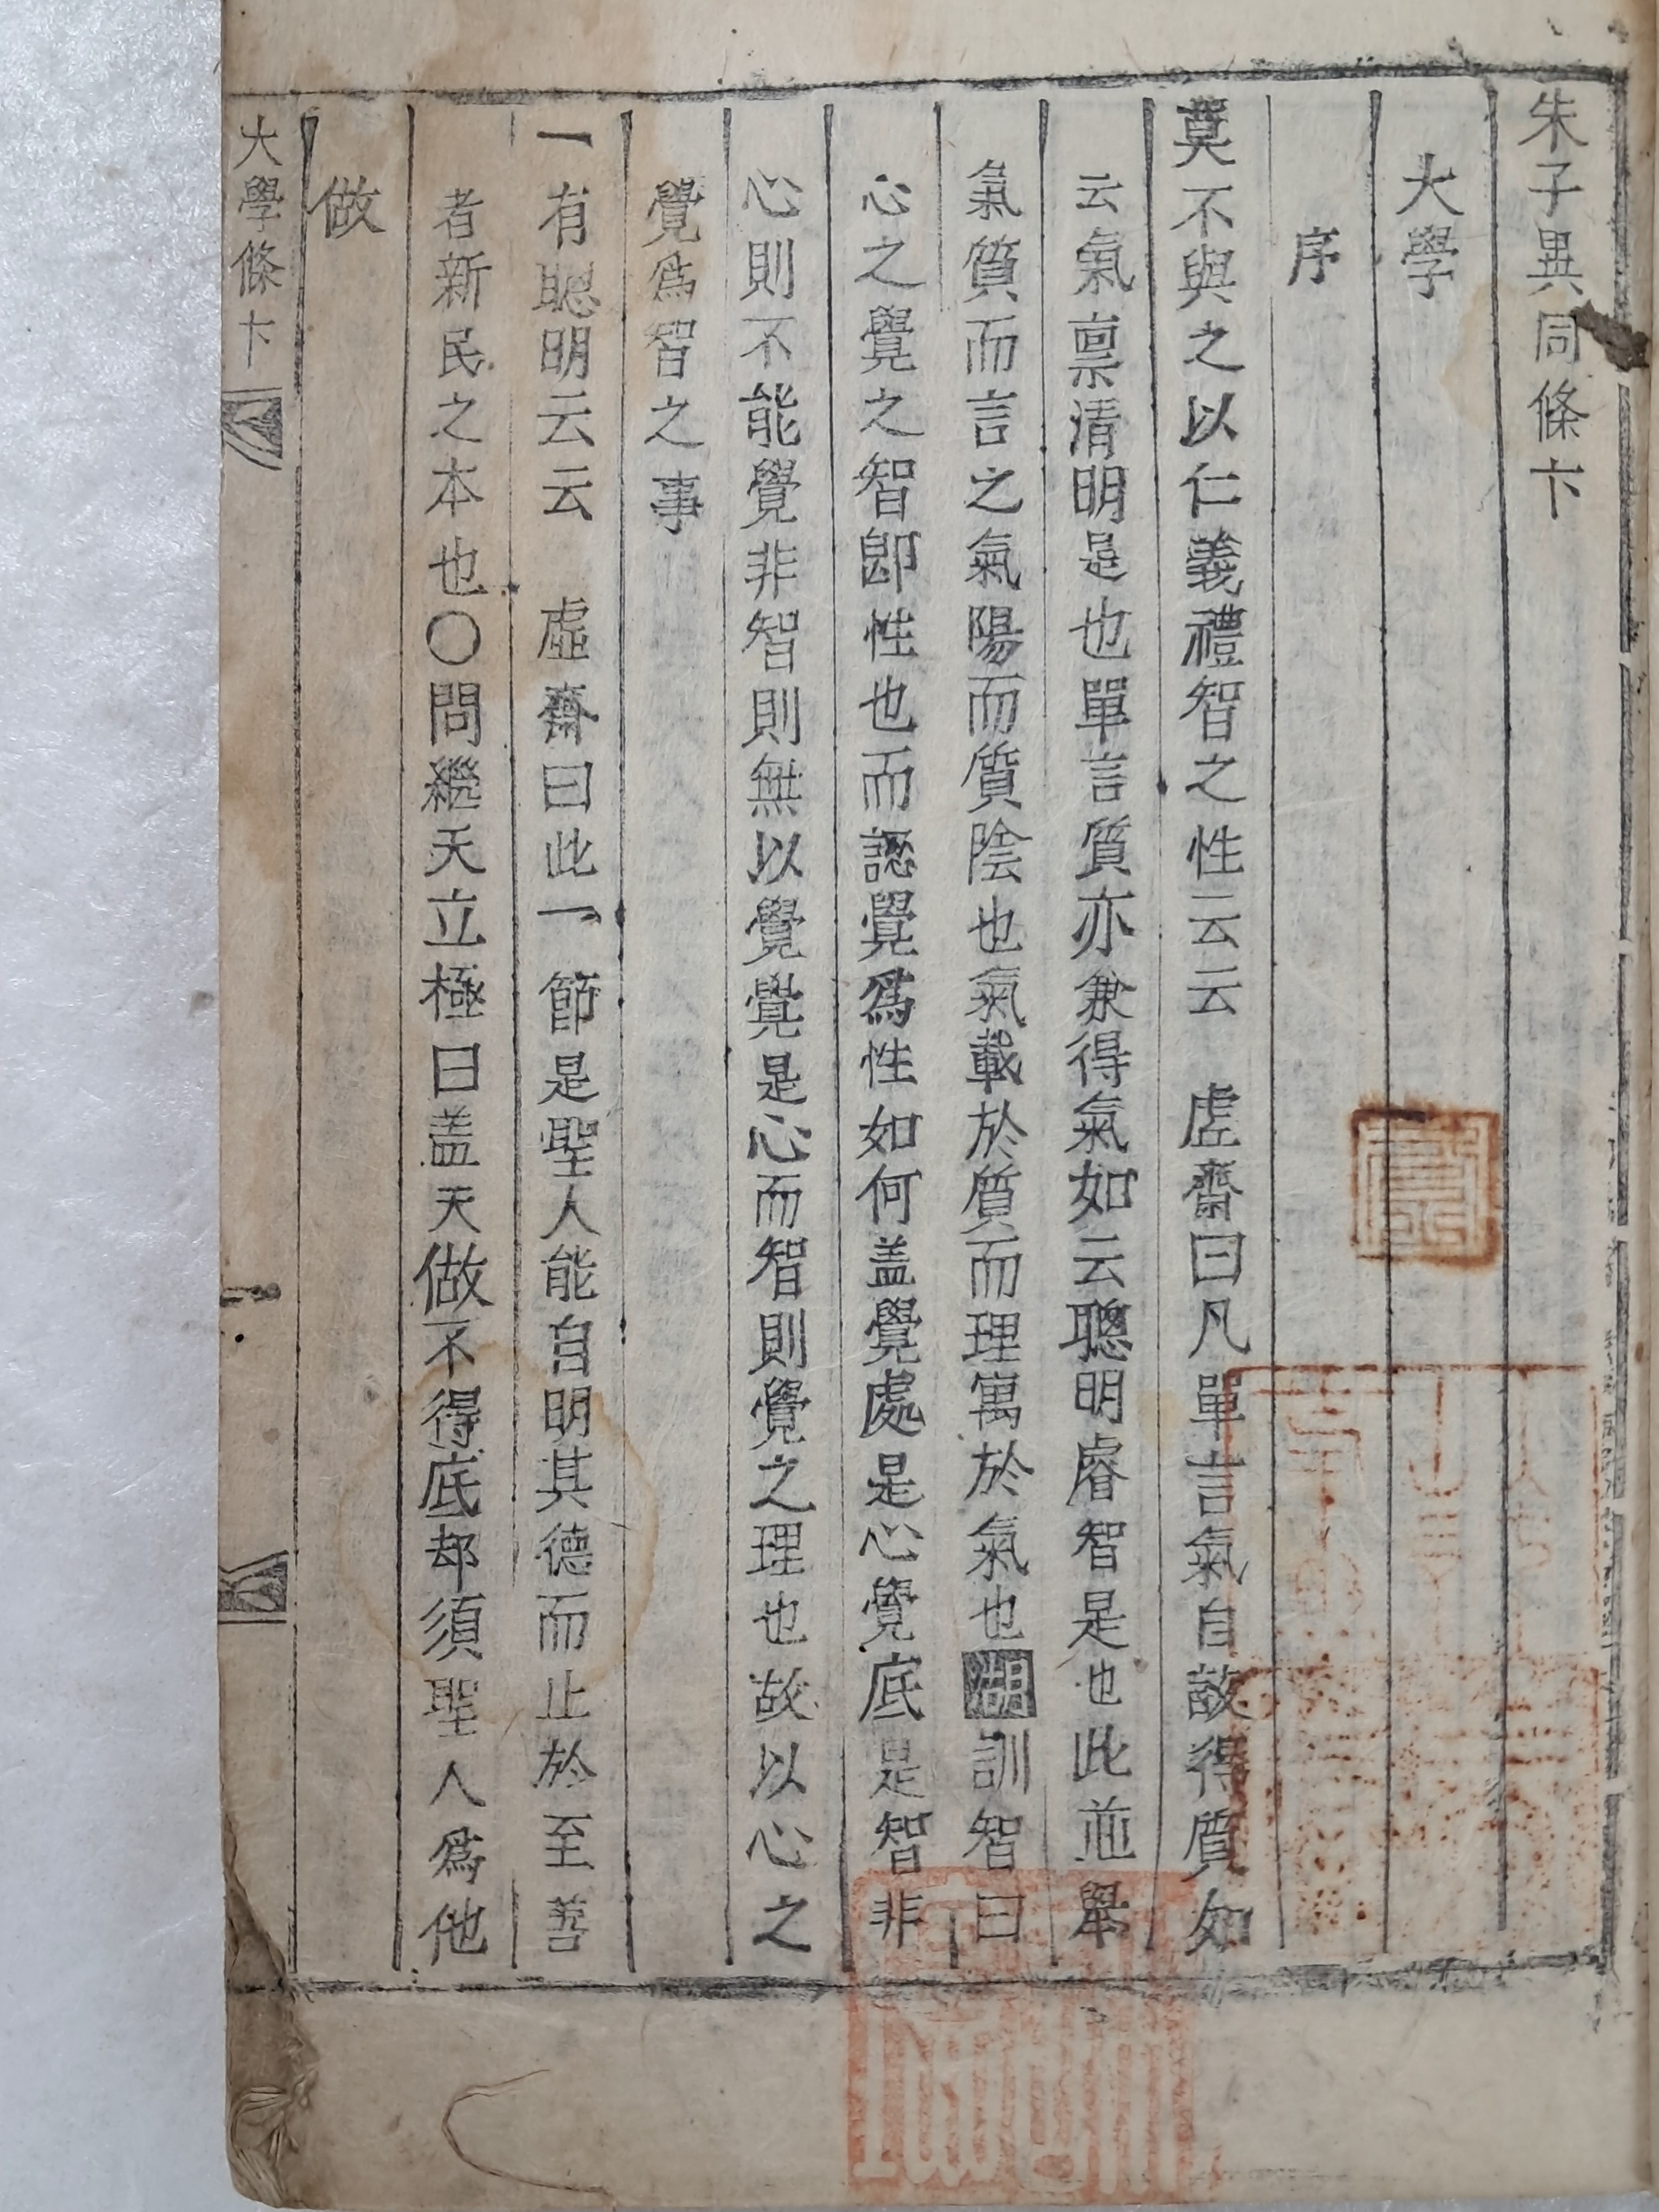 朱子異同條卞
大學
序
莫不與之以仁義禮智之性云云 虛齋曰凡單言氣自該得質如
云氣禀清明是也單言質亦兼得氣如云聰明睿智是也此並舉
氣質而言之氣陽而質陰也氣載於質而理寓於氣也湖訓智曰
心之覺之智卽性也而認覺爲性如何盖覺處是心覺底是智非
心則不能覺非智則無以覺覺是心而智則覺之理也故以心之
覺爲智之事
一有聰明云云 虛齋曰此一節是聖人能自明其德而止於至善
者新民之本也〇問繼天立極曰盖天做不得底却須聖人爲他
做
大學條卞
一